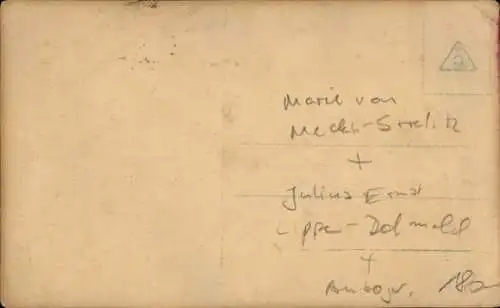 Marie von
Meckl-Strelitz
+
Julius Ernst
Lippe-Detmold
+
18,-